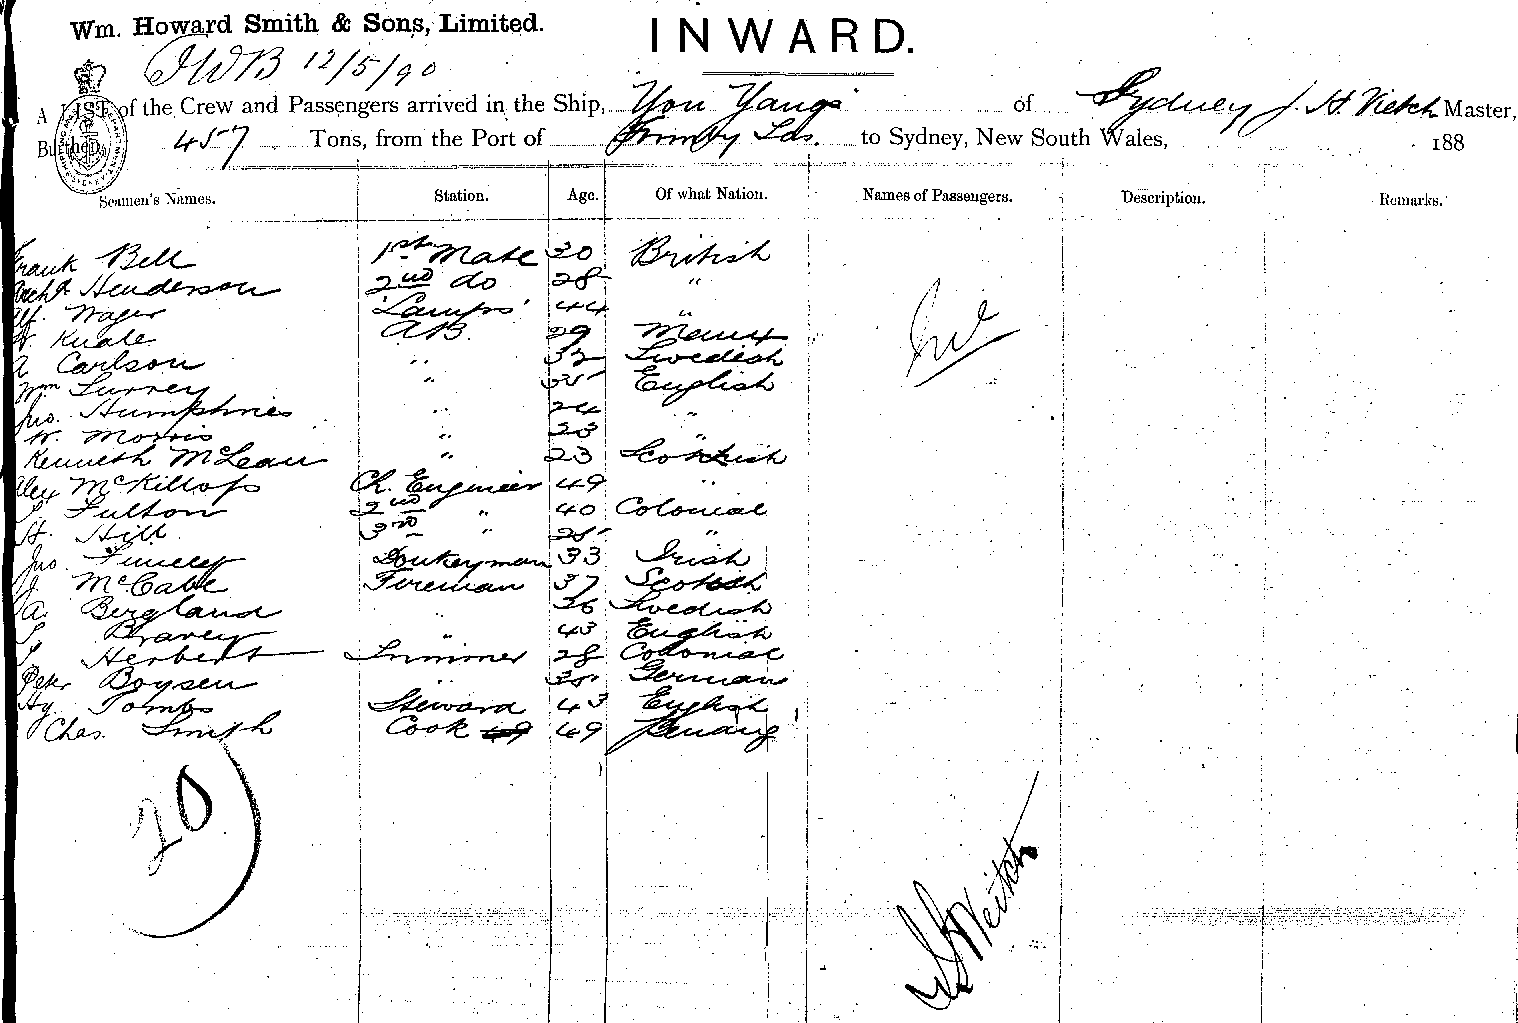 Wm. Howard Smith & Sons, Limited.
INWARD.
JWB 12/5/90
A LIST of the Crew and Passengers arrived in the Ship, You Yangs of Sydney J. H. Veitch Master,
Burthen, 457 Tons, from the Port of to Sydney, New South Wales, 188
Seamen's Names. Station. Age. Of what Nation. Names of Passengers. Description. Remarks.
Frank Bell 1st Mate 30 British
Archd Henderson 2nd do 28 "
Alf. Wager 'Lamps' 44 "
W. Kuale AB. 29 Manx
A Carlson " 32 Swedish
Wm Surrey " 35 English
Jno. Humphries " 24 "
W. Morris " 23 "
Kenneth McLean " 23 Scottish
Alex McKillop Ch. Engineer 49 "
Fulton 2nd " 40 Colonial
H. Hill 3rd " 25 "
Jno. Donkeyman 33 Irish
J McCabe Fireman 37 Scotch
A. Bergland " 36 Swedish
Bravey " 43 English
Herbert Trimmer 28 Colonial
Peter Boysen " 35 German
Hy Tombs Steward 43 English
Chas. Smith Cook 49 49 Penang
Nil
20
J H Veitch